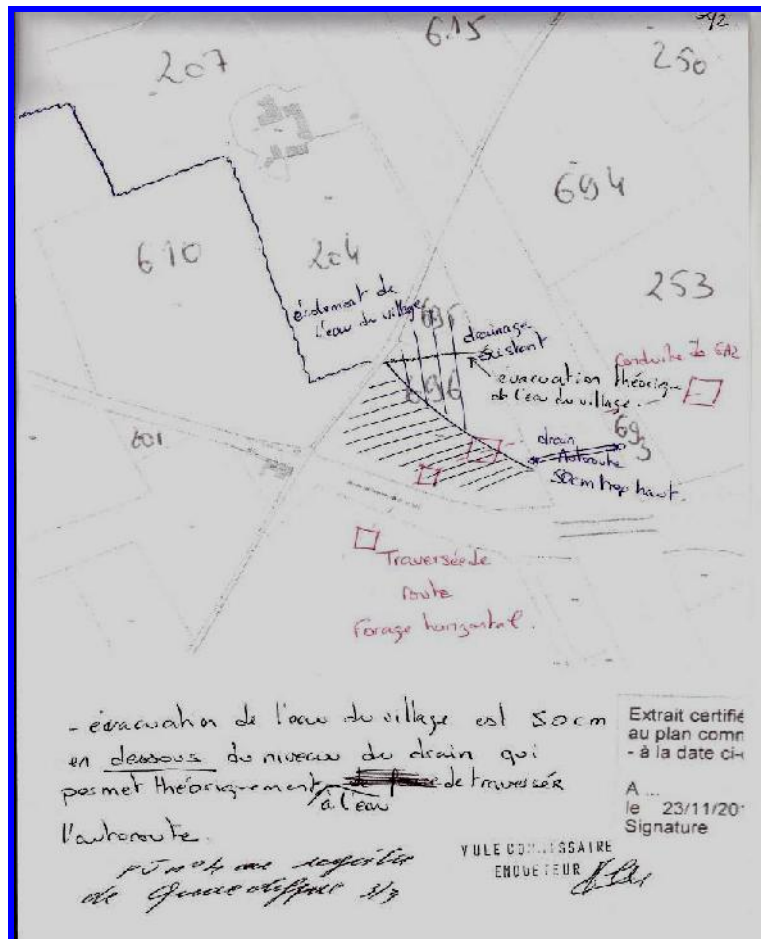 207
615
250
694
610
204
253
écoulement de
l'eau du village
695
drainage
existant
696
évacuation théorique
de l'eau du village.
conduite
601
drain
Autoroute
50cm trop haut.
693
Traversée de
route
Forage horizontal.
- évacuation de l'eau du village est 50cm
en dessous du niveau du drain qui
posmet théoriquement de traversér
à l'eau
l'autoroute.
Extrait certifié
au plan comm
- à la date ci-
A ...
le 23/11/20
Signature
VU LE COMMISSAIRE
ENQUETEUR
PJ n°4 au registre
de 3/3